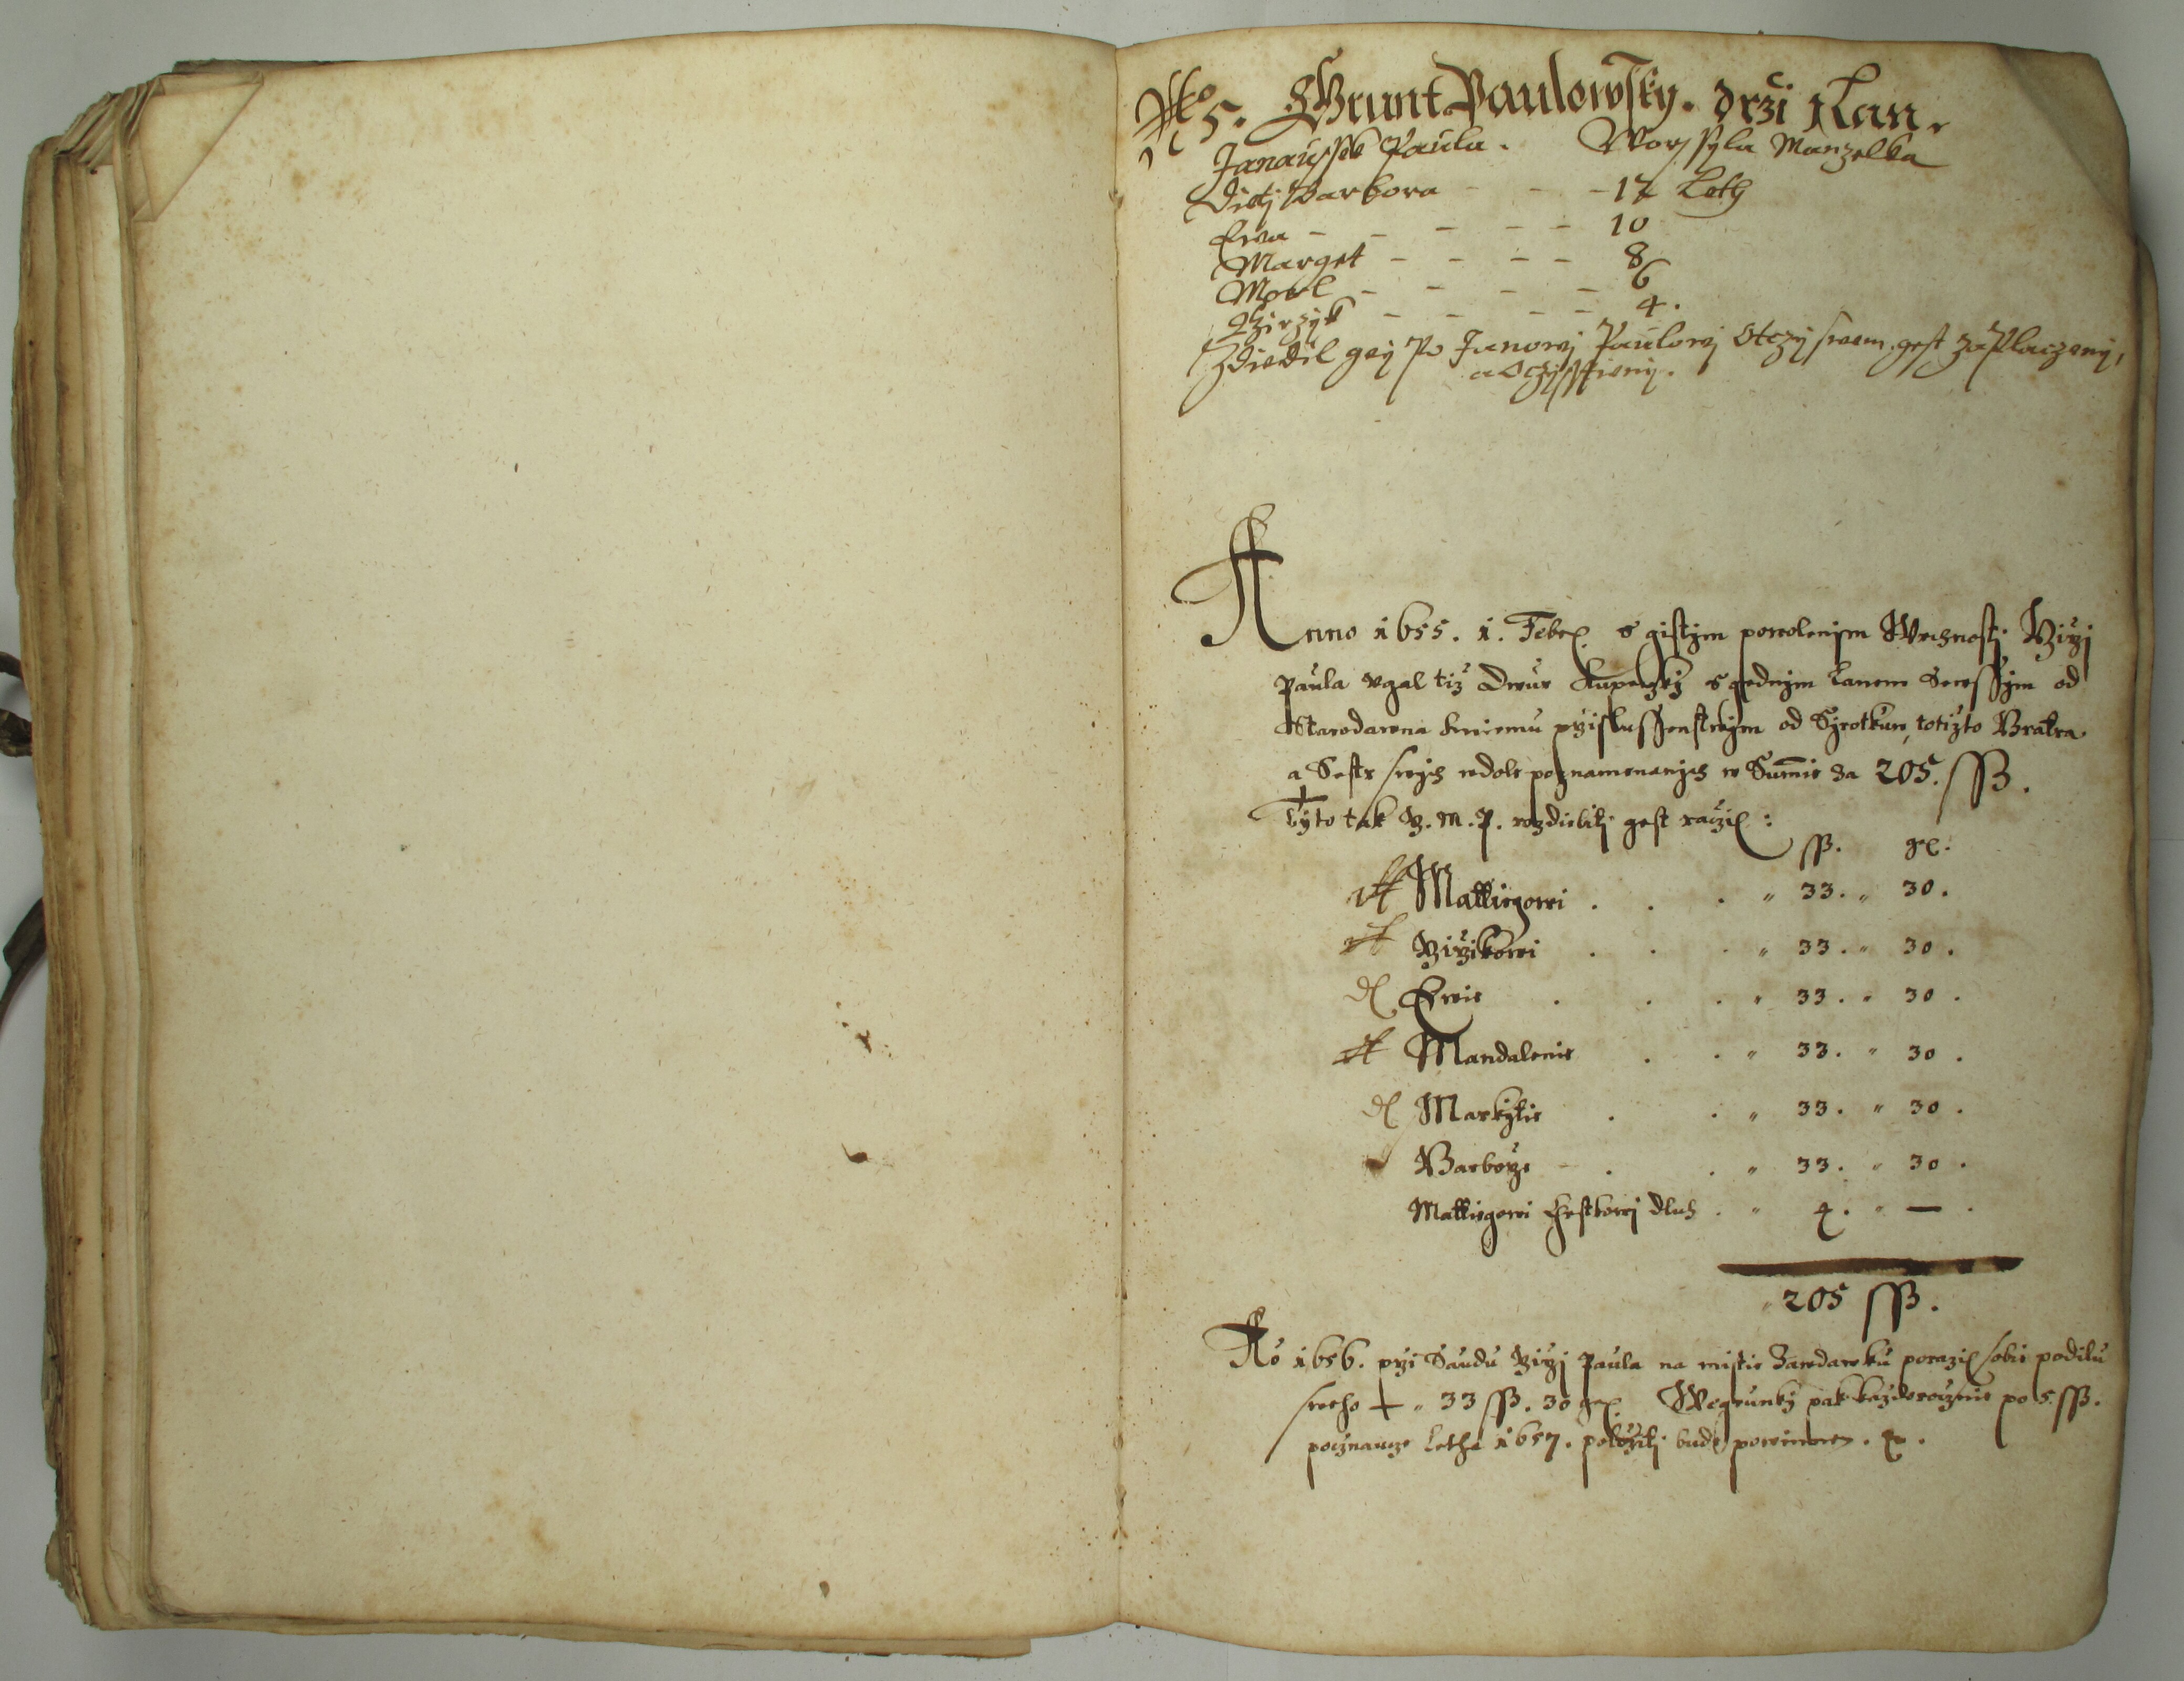 No 5. Grunt Paulowsky. drži 1 Lan.
Janaussek Paula. Worssyla Manzelka
Dietj Barbora - - - 17 Leth
Ewa - - - - - 10
Marget - - - - 8
- - - - 6
Girzyk - - - - 4.
Zdiedil gey po Janowj Paulowj Otczy swem. gest zaplaczeny,
a oczysstieny.
Anno 1655. 1. Febr. s gistym powolenjm Wrchnostj Girzj
Paula ugal tiz Dwur Kupeczky s gednym Lanem Dewssym od
Starodawna kniemu przislussenstwjm od Syrotkuw, totizto Bratra
a Sestr swych wdole poznamenanych w Summie za 205. ss.
Tyto tak G. M. P. rozdielitj gest raczil:
ss. gr.
Mattiegowi . . . " 33. " 30.
Girzikowi . . . " 33. " 30.
Ewie . . . " 33. " 30.
Mandalenie . . " 33. " 30.
Markytie . . " 33. " 30.
Barborze . . " 33. " 30.
Mattiegowi dluh . " 4. " — .
205 ss.
Ao 1656. przi Saudu Girzj Paula na mistie Zawdawku porazil sobie podilu
sweho + " 33 ss. 30 gr. Wegrunky pak kazdorocznie po 5. ss.
pocznaucze Letha 1657. polozitj bude powinen.